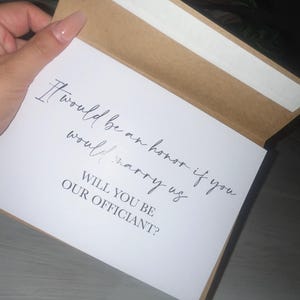 It would be an honor if you
would marry us
WILL YOU BE
OUR OFFICIANT?